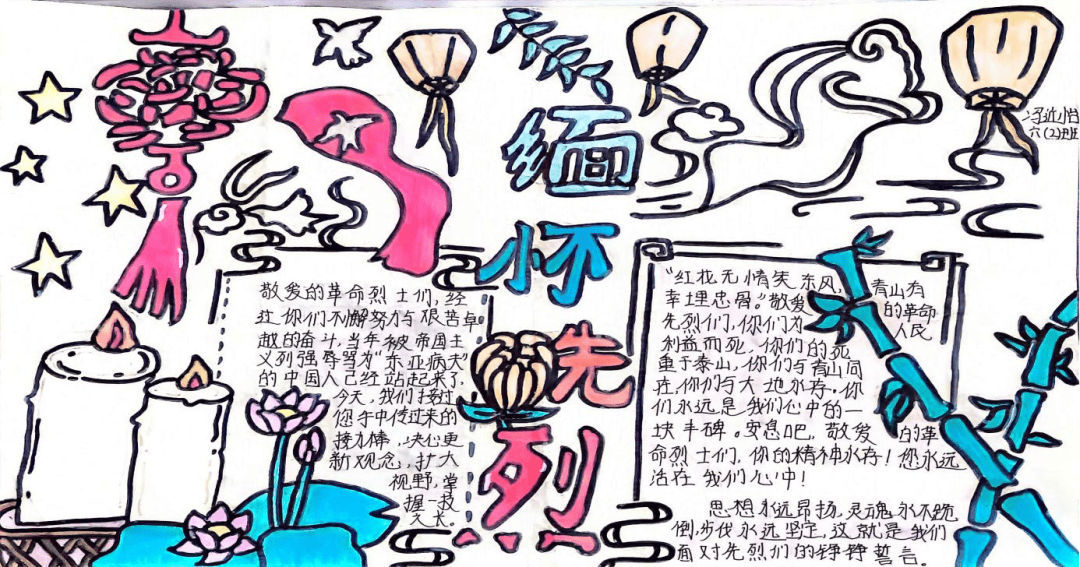 缅怀先烈
六(2)班
敬爱的革命烈士们,经
过你们不懈努力与艰苦卓
越的奋斗,当年被帝国主
义列强辱骂为“东亚病夫”
的中国人已经站起来了.
今天,我们接过
您手中传过来的
接力棒,决心更
新观念,扩大
视野,掌
握一技
之长。
“红花无情笑东风,青山有
幸埋忠骨。”敬爱的革命
先烈们,你们为人民
利益而死,你们的死
重于泰山,你们与青山同
在,你们与大地永存.你
们永远是我们心中的一
块丰碑。安息吧,敬爱的革
命烈士们,你的精神永存!您永远
活在我们心中!
思想永远昂扬,灵魂永不跪
倒,步伐永远坚定,这就是我们
面对先烈们的铮铮誓言。